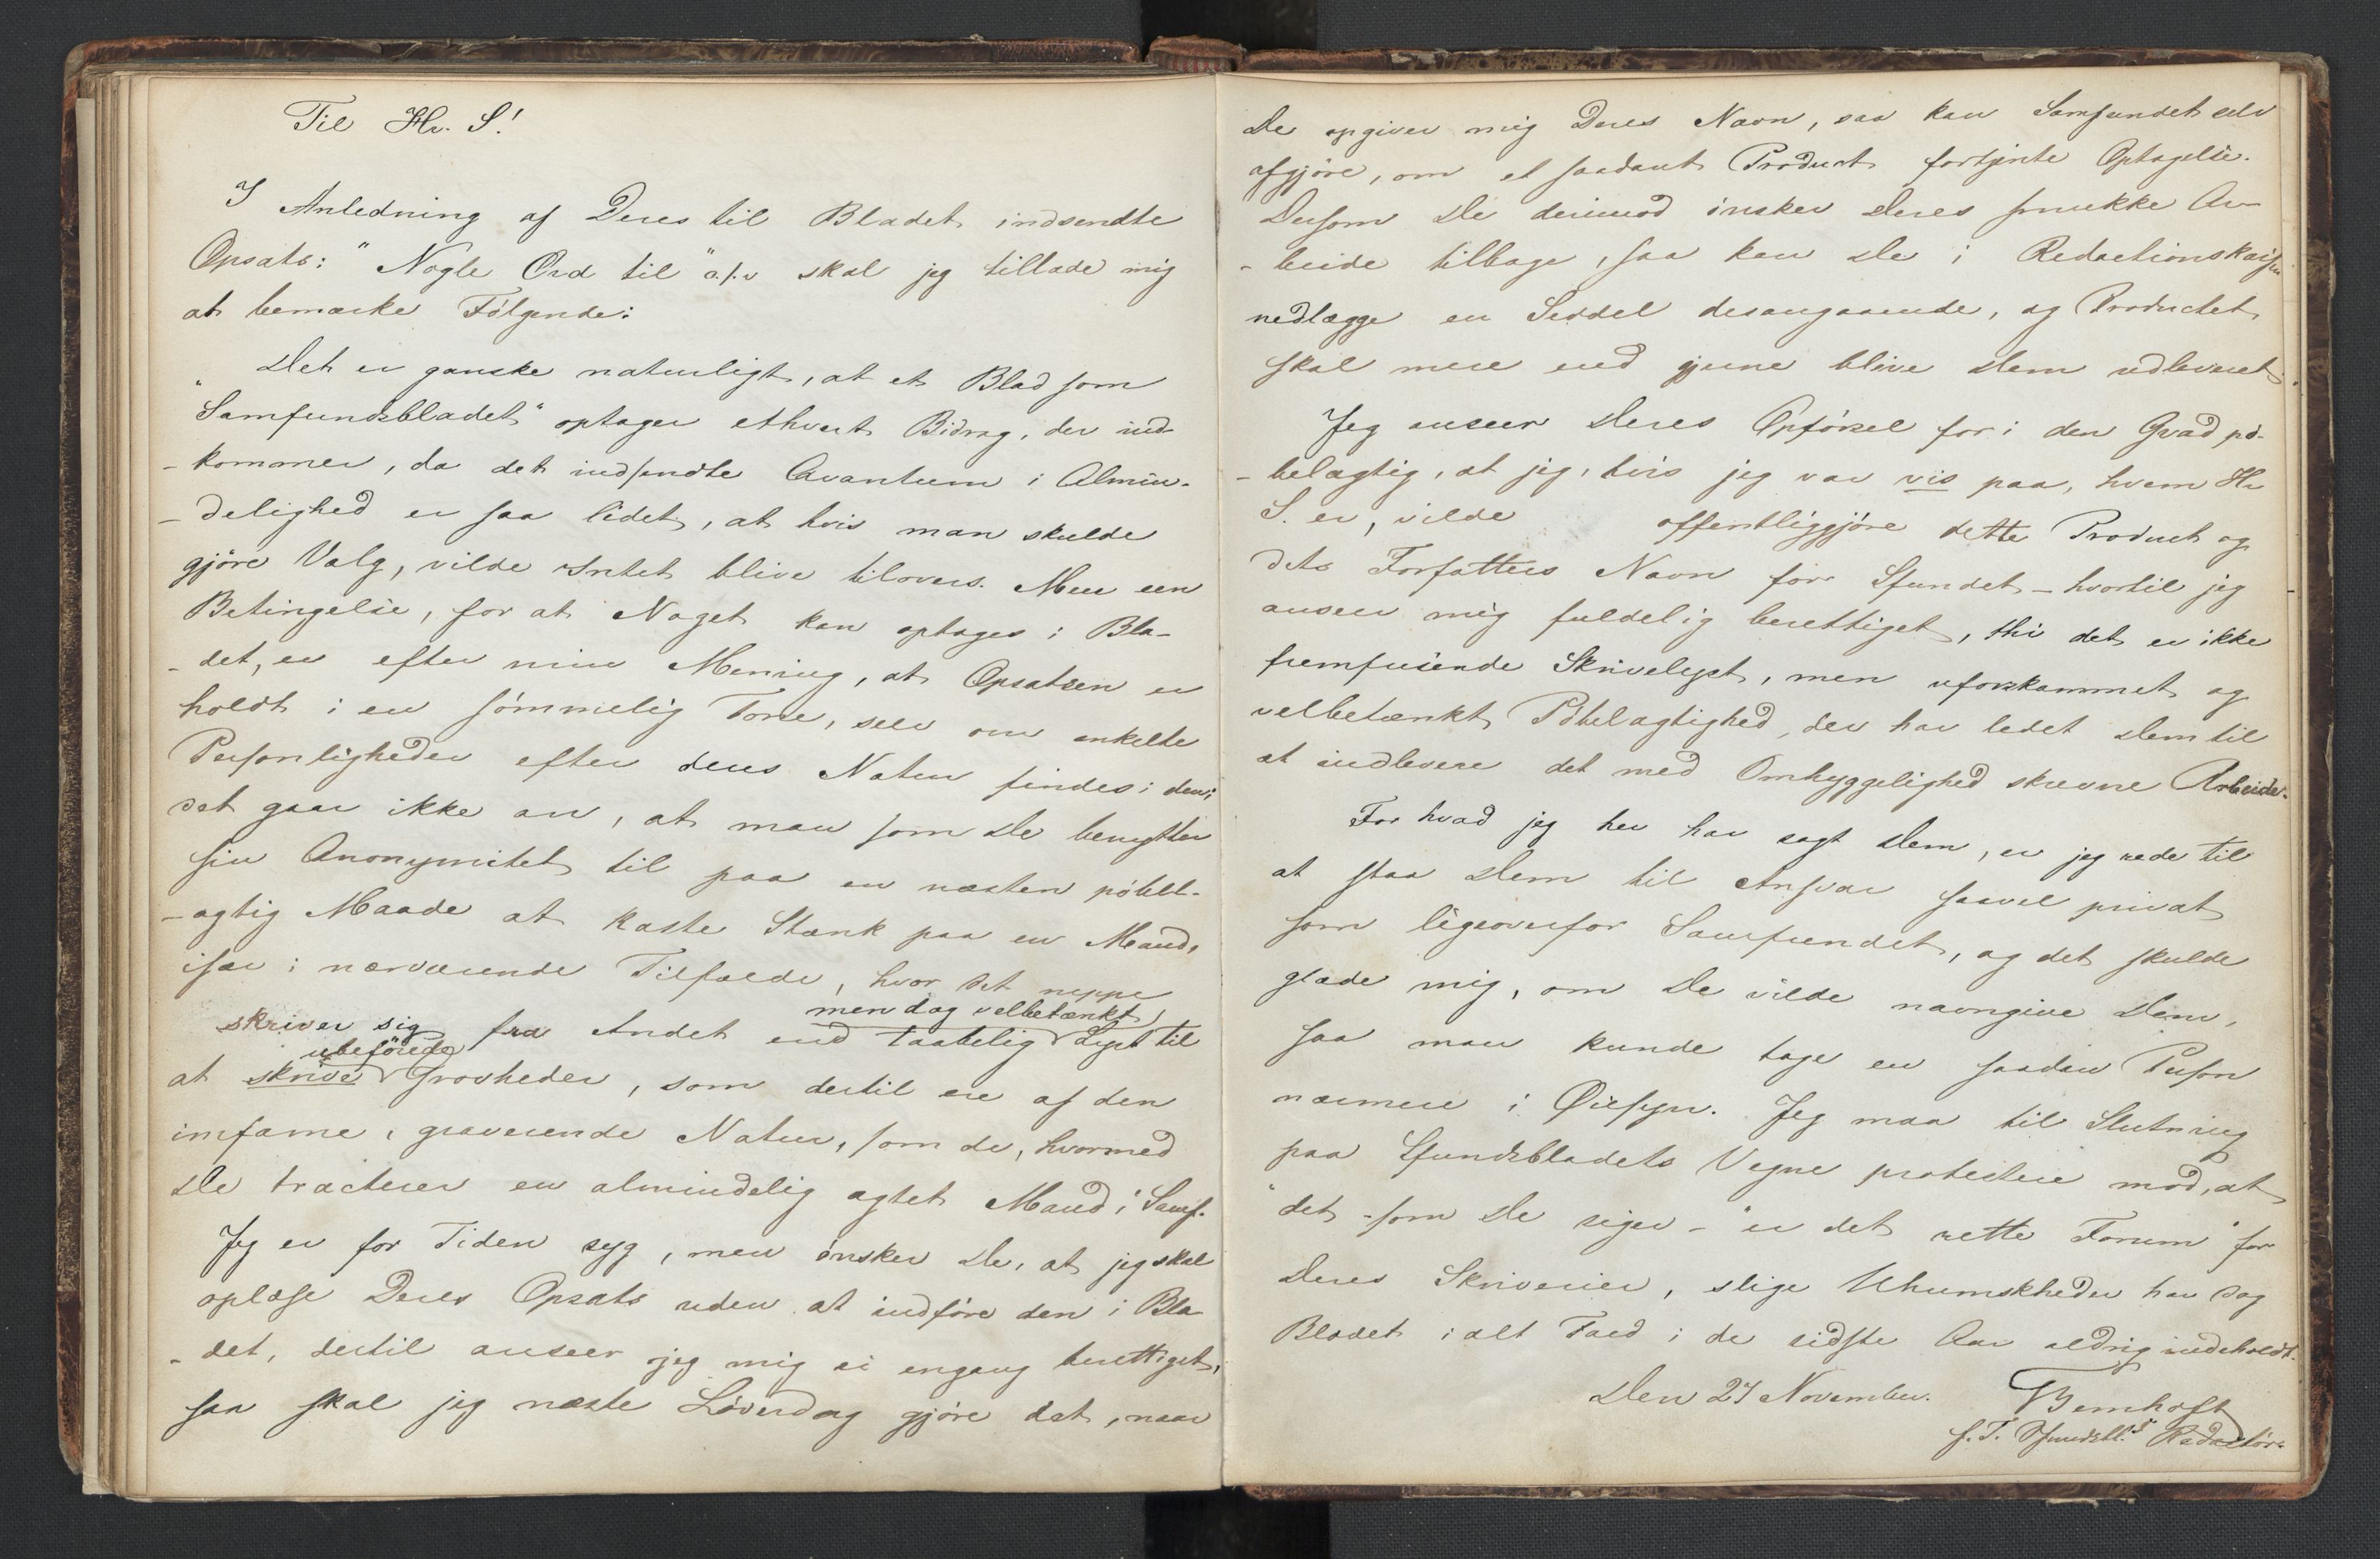 Til Hr. S!
I Anledning af Deres til Bladet indsendte
Opsats: "Nogle Ord til" o.s.v skal jeg tillade mig
at bemærke Følgende:
Det er ganske naturligt, at et Blad som
"Samfundsbladet" optager ethvert Bidrag, der ind-
-kommer, da det indsendte Qvantum i Almin-
-delighed er saa lidet, at hvis man skulde
gjöre Valg, vilde Intet blive tilovers. Men een
Betingelse, for at Noget kan optages i Bla-
-det, er efter min Mening, at Opsatsen er
holdt i en sömmelig Tone, selv om enkelte
Personligheder efter deres Natur findes i den;
det gaar ikke an, at man som De benytter
sin Anonymitet til paa en næsten pöbel-
-agtig Maade at kaste Stænk paa en Mand,
især i nærværende Tilfælde, hvor det neppe
skriver sig fra Andet end taabelig men dog velbetænkt Lyst til
at skrive ubeföiede Grovheder, som dertil ere af den
infame, graverende Natur, som de, hvormed
De tracterer en almindelig agtet Mand i Samf.
Jeg er for Tiden syg, men önsker De, at jeg skal
oplæse Deres Opsats uden at indföre den i Bla
-det, dertil anseer jeg mig ei engang berettiget,
saa skal jeg næste Löverdag gjöre det, naar
De opgiver mig Deres Navn, saa kan Samfundet selv
afgjöre, om et saadant Product fortjente Optagelse.
Dersom De derimod önsker Deres smukke Ar-
-beide tilbage, saa kan De i Redactionskassen
nedlægge en Seddel desangaaende, og Productet
skal mere end gjerne blive Dem udleveret.
Jeg anseer Deres Opförsel for i den Grad pö-
-belagtig, at jeg, hvis jeg var vis paa, hvem Hr
S. er, vilde offentliggjöre dette Product og
dets Forfatters Navn for Sfundet - hvortil jeg
anseer mig fuldelig berettiget, thi det er ikke
fremfusende Skrivelyst, men uforskammet og
velbetænkt Pöbelagtighed, der har ledet Dem til
at indlevere det med Omhyggelighed skrevne Arbeide.
For hvad jeg her har sagt Dem, er jeg rede til
at staa Dem til Ansvar saavel privat
som ligeoverfor Samfundet, og det skulde
glæde mig, om De vilde navngive Dem,
saa man kunde tage en saadan Person
nærmere i Øiesyn. Jeg maa til Slutning
paa Sfundsbladets Vegne protestere mod, at
"det - som De siger - "er det rette Forum" for
Deres Skriverier, slige Uhumskheder har dog
Bladet i alt Fald i de sidste Aar aldrig indeholdt.
Den 27 November. TBernhoft
f. T. Sfundsbl.s Redactör.